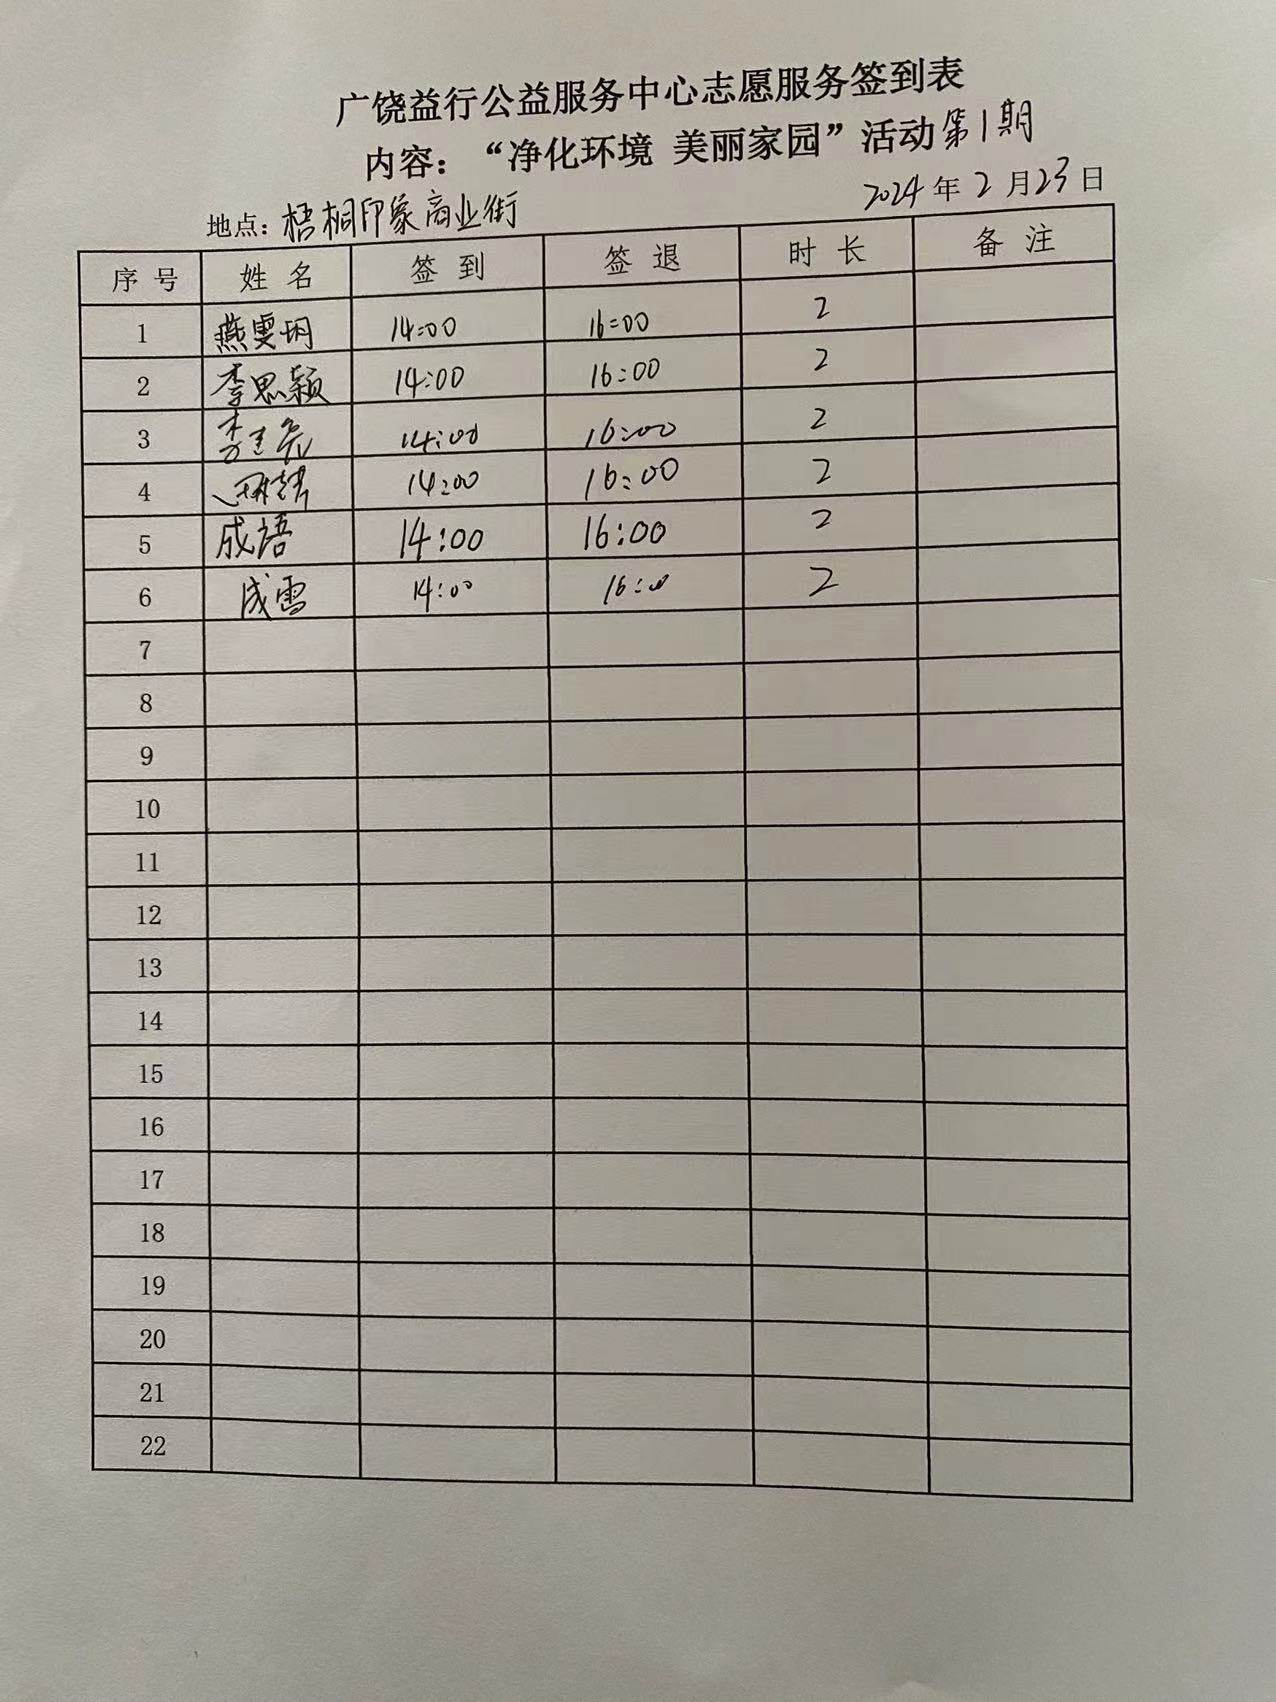 广饶益行公益服务中心志愿服务签到表
内容：“净化环境 美丽家园”活动第1期
地点：梧桐印象商业街 2024年2月23日
序号 姓名 签到 签退 时长 备注
1 燕雯玥 14:00 16:00 2
2 李思颖 14:00 16:00 2
3 14:00 16:00 2
4 14:00 16:00 2
5 成语 14:00 16:00 2
6 成雪 14:00 16:00 2
7
8
9
10
11
12
13
14
15
16
17
18
19
20
21
22